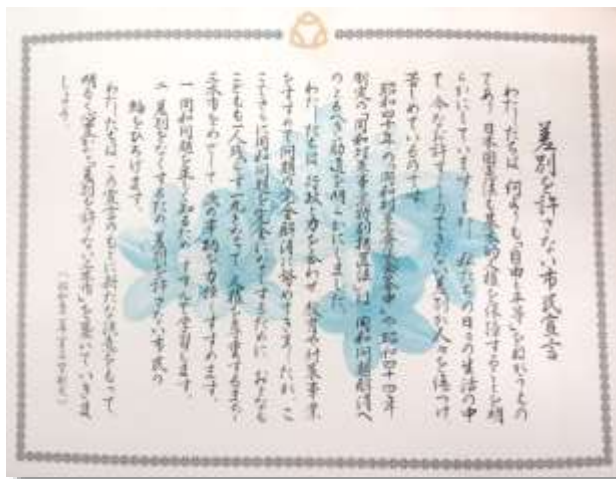 差別を許さない市民宣言
わたしたちは、何よりも「自由と平等」をねがうもの
であり、日本国憲法も基本的人権を保障することを明
らかにしています。しかし、私たちの日々の生活の中
で、今なお許すことのできない差別が人々を傷つけ
苦しめているのです。
昭和四十年の「同和対策審議会答申」や昭和四十四年
制定の「同和対策事業特別措置法」は、同和問題解消へ
のとるべき筋道を明らかにしました。
わたしたちは、行政と力を合わせ、教育や対策事業
をすすめて問題の完全解消に努めてきましたが、こ
こでさらに同和問題を完全になくするために、おとなも
こどもも一人残らず一丸となって、人権を尊重するまち
三木市をめざして、次の事柄を力強くすすめます。
一 同和問題を正しく知るため、すすんで学習します。
二 差別をなくするため、差別を許さない市民の
輪をひろげます。
わたしたちは、この宣言のもとに新たな決意をもって
明るく住みよい差別を許さない三木市を築いていきま
しょう。